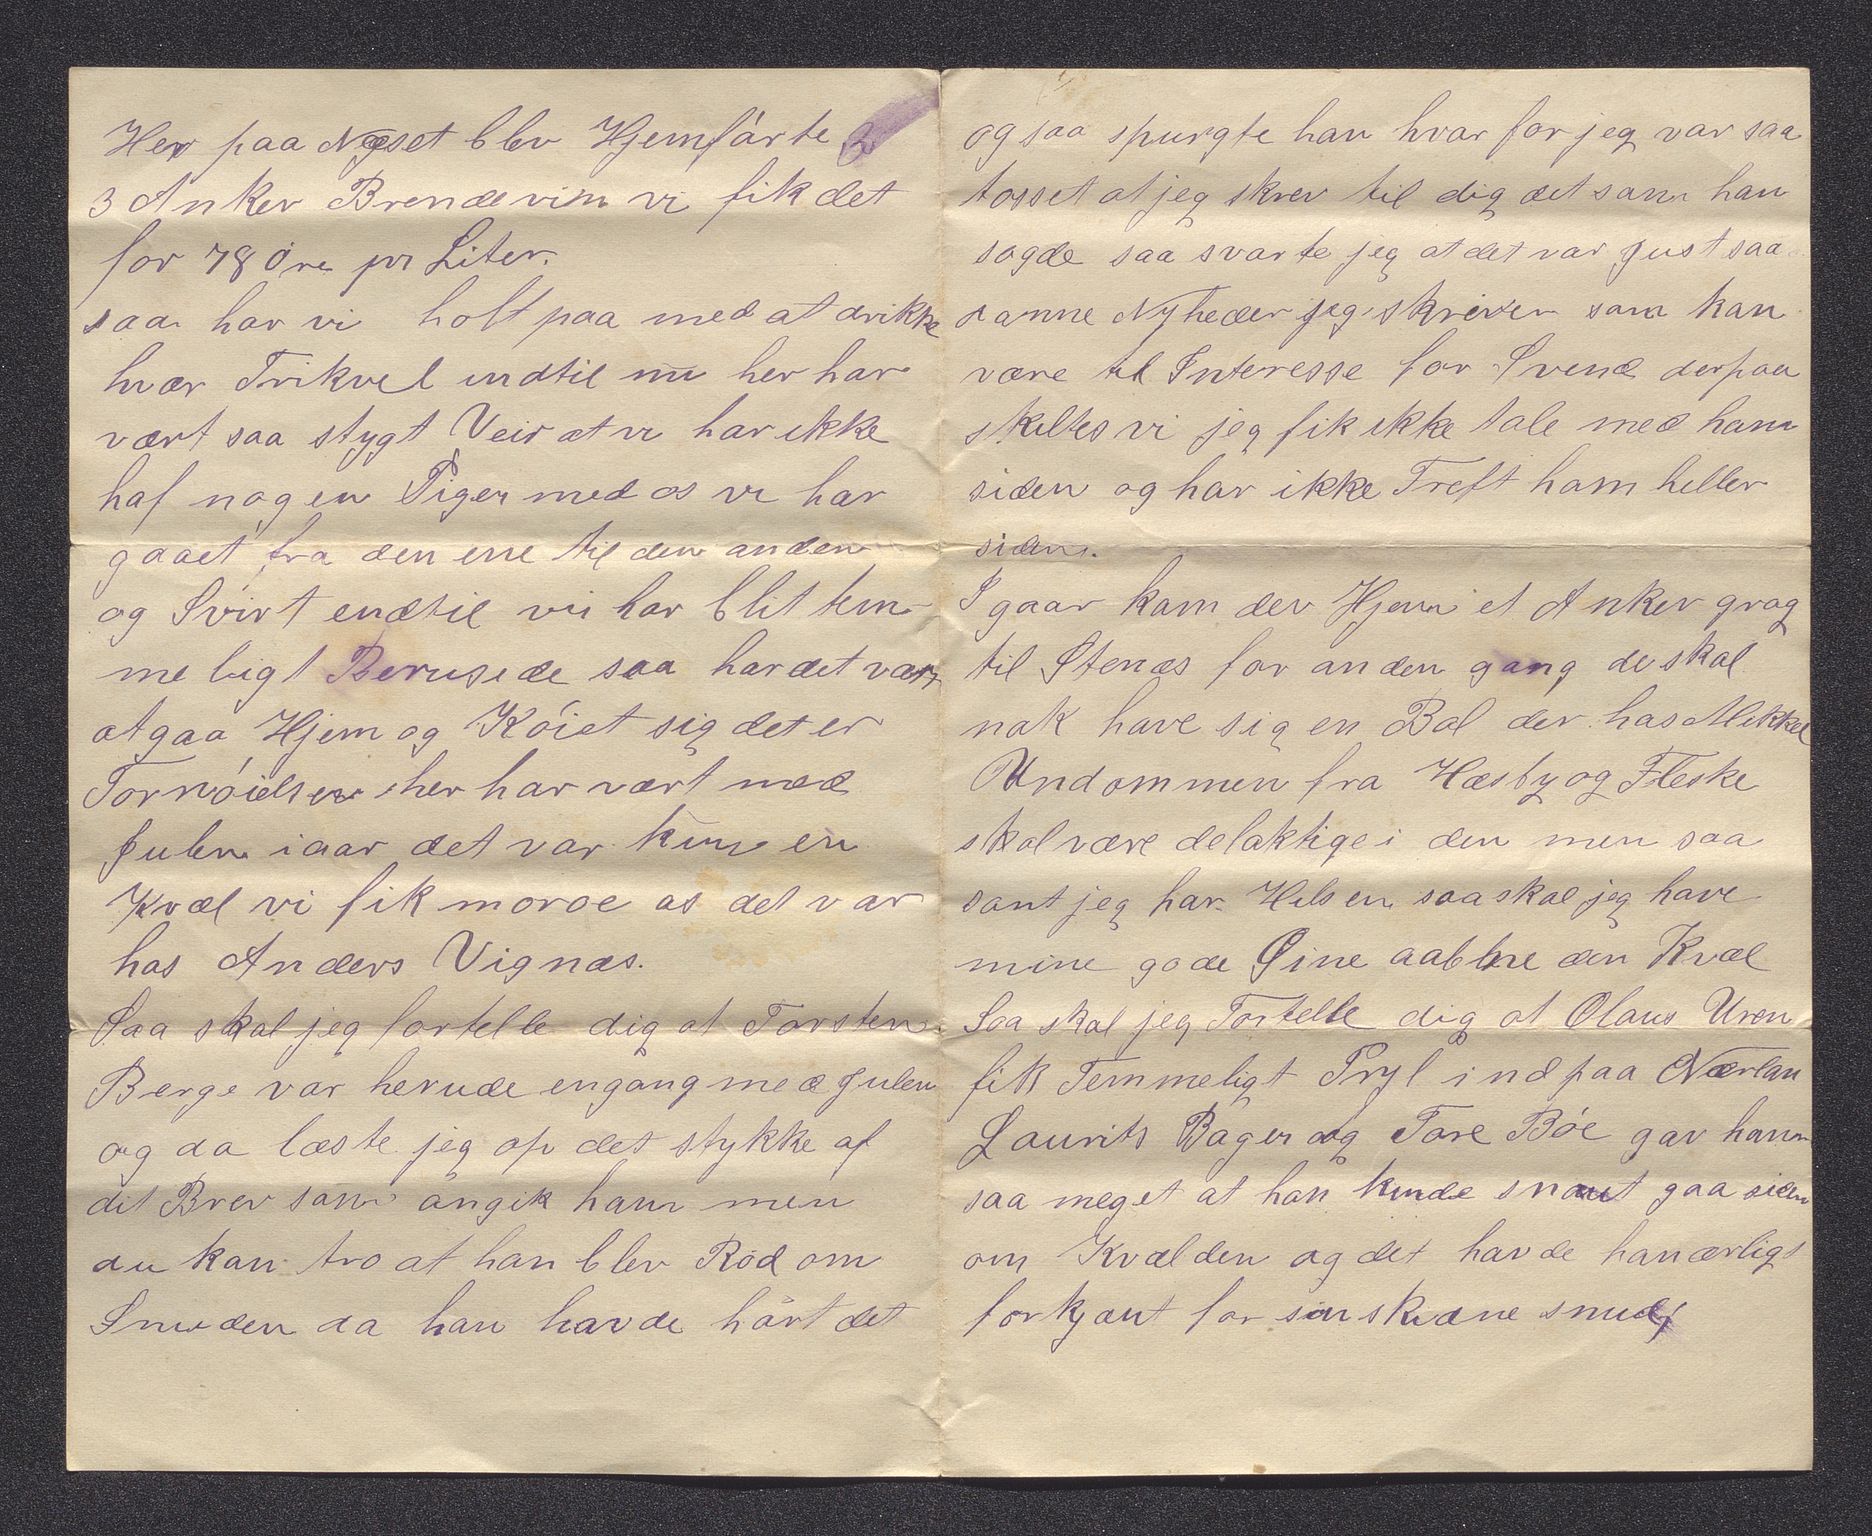 Her paa Næset blev Hjemførte 2
3 Anker Brendevin vi fik det
for 78 Øre pr Liter.
saa har vi holt paa med at drikke
hvær Frikvel indtil nu her har
vært saa stygt Veir at vi har ikke
haf nogen Piger med os vi har
gaaet fra den ene til den anden
og Svirt endtil vi har blit tem
meligt Berusede saa har det vært
at gaa Hjem og Køiet sig det er
Fornøielsen her har vært med
Julen iaar det var kun en
Kvæl vi fik moroe os det var
hos Anders Vignæs.
Saa skal jeg fortelle dig at Torsten
Berge var herude engang med Julen
og da læste jeg op det stykke af
dit Brev som angik ham men
du kan tro at han blev Rød om
Snuden da han havde hørt det
og saa spurgte han hvar for jeg var saa
tosset at jeg skrev til dig det som han
sagde saa svarte jeg at det var just saa
danne Nyheder jeg skriver som kan
være til Interesse for Svend derpaa
skiltes vi jeg fik ikke tale med ham
siden og har ikke Treft ham heller
siden.
I gaar kom der Hjem et Anker grog
til Stenæs for anden gang de skal
nok have sig en Bal der hos Mikkel
Undommen fra Hæsby og Fleske
skal være delaktige i den men saa
sant jeg har Helsen saa skal jeg have
mine gode Øine aabbne den Kvæl
Saa skal jeg Fortelle dig at Olaus Uren
fik Temmeligt Pryl ind paa Nærlan
Laurits Bager og Tore Bøe gav ham
saa meget at han kunde snaut gaa siden
om Kvælden og det havde han ærligt
forkjænt for sin skidne snude